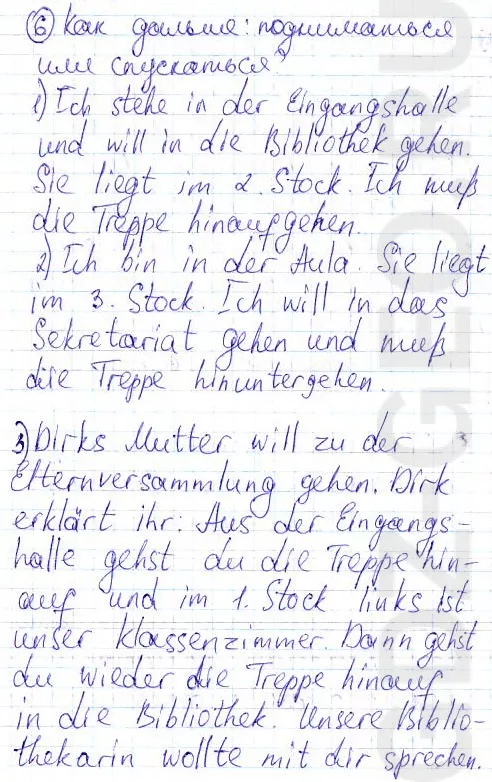 ⑥ Как дальше: подниматься
или спускаться?
1) Ich stehe in der Eingangshalle
und will in die Bibliothek gehen.
Sie liegt im 2. Stock. Ich muß
die Treppe hinaufgehen.
2) Ich bin in der Aula. Sie liegt
im 3. Stock. Ich will in das
Sekretariat gehen und muß
die Treppe hinuntergehen.
3) Dirks Mutter will zu der
Elternversammlung gehen. Dirk
erklärt ihr: Aus der Eingangs-
halle gehst du die Treppe hin-
auf und im 1. Stock links ist
unser Klassenzimmer. Dann gehst
du wieder die Treppe hinauf
in die Bibliothek. Unsere Biblio-
thekarin wollte mit dir sprechen.
GDZ-GEO.RU